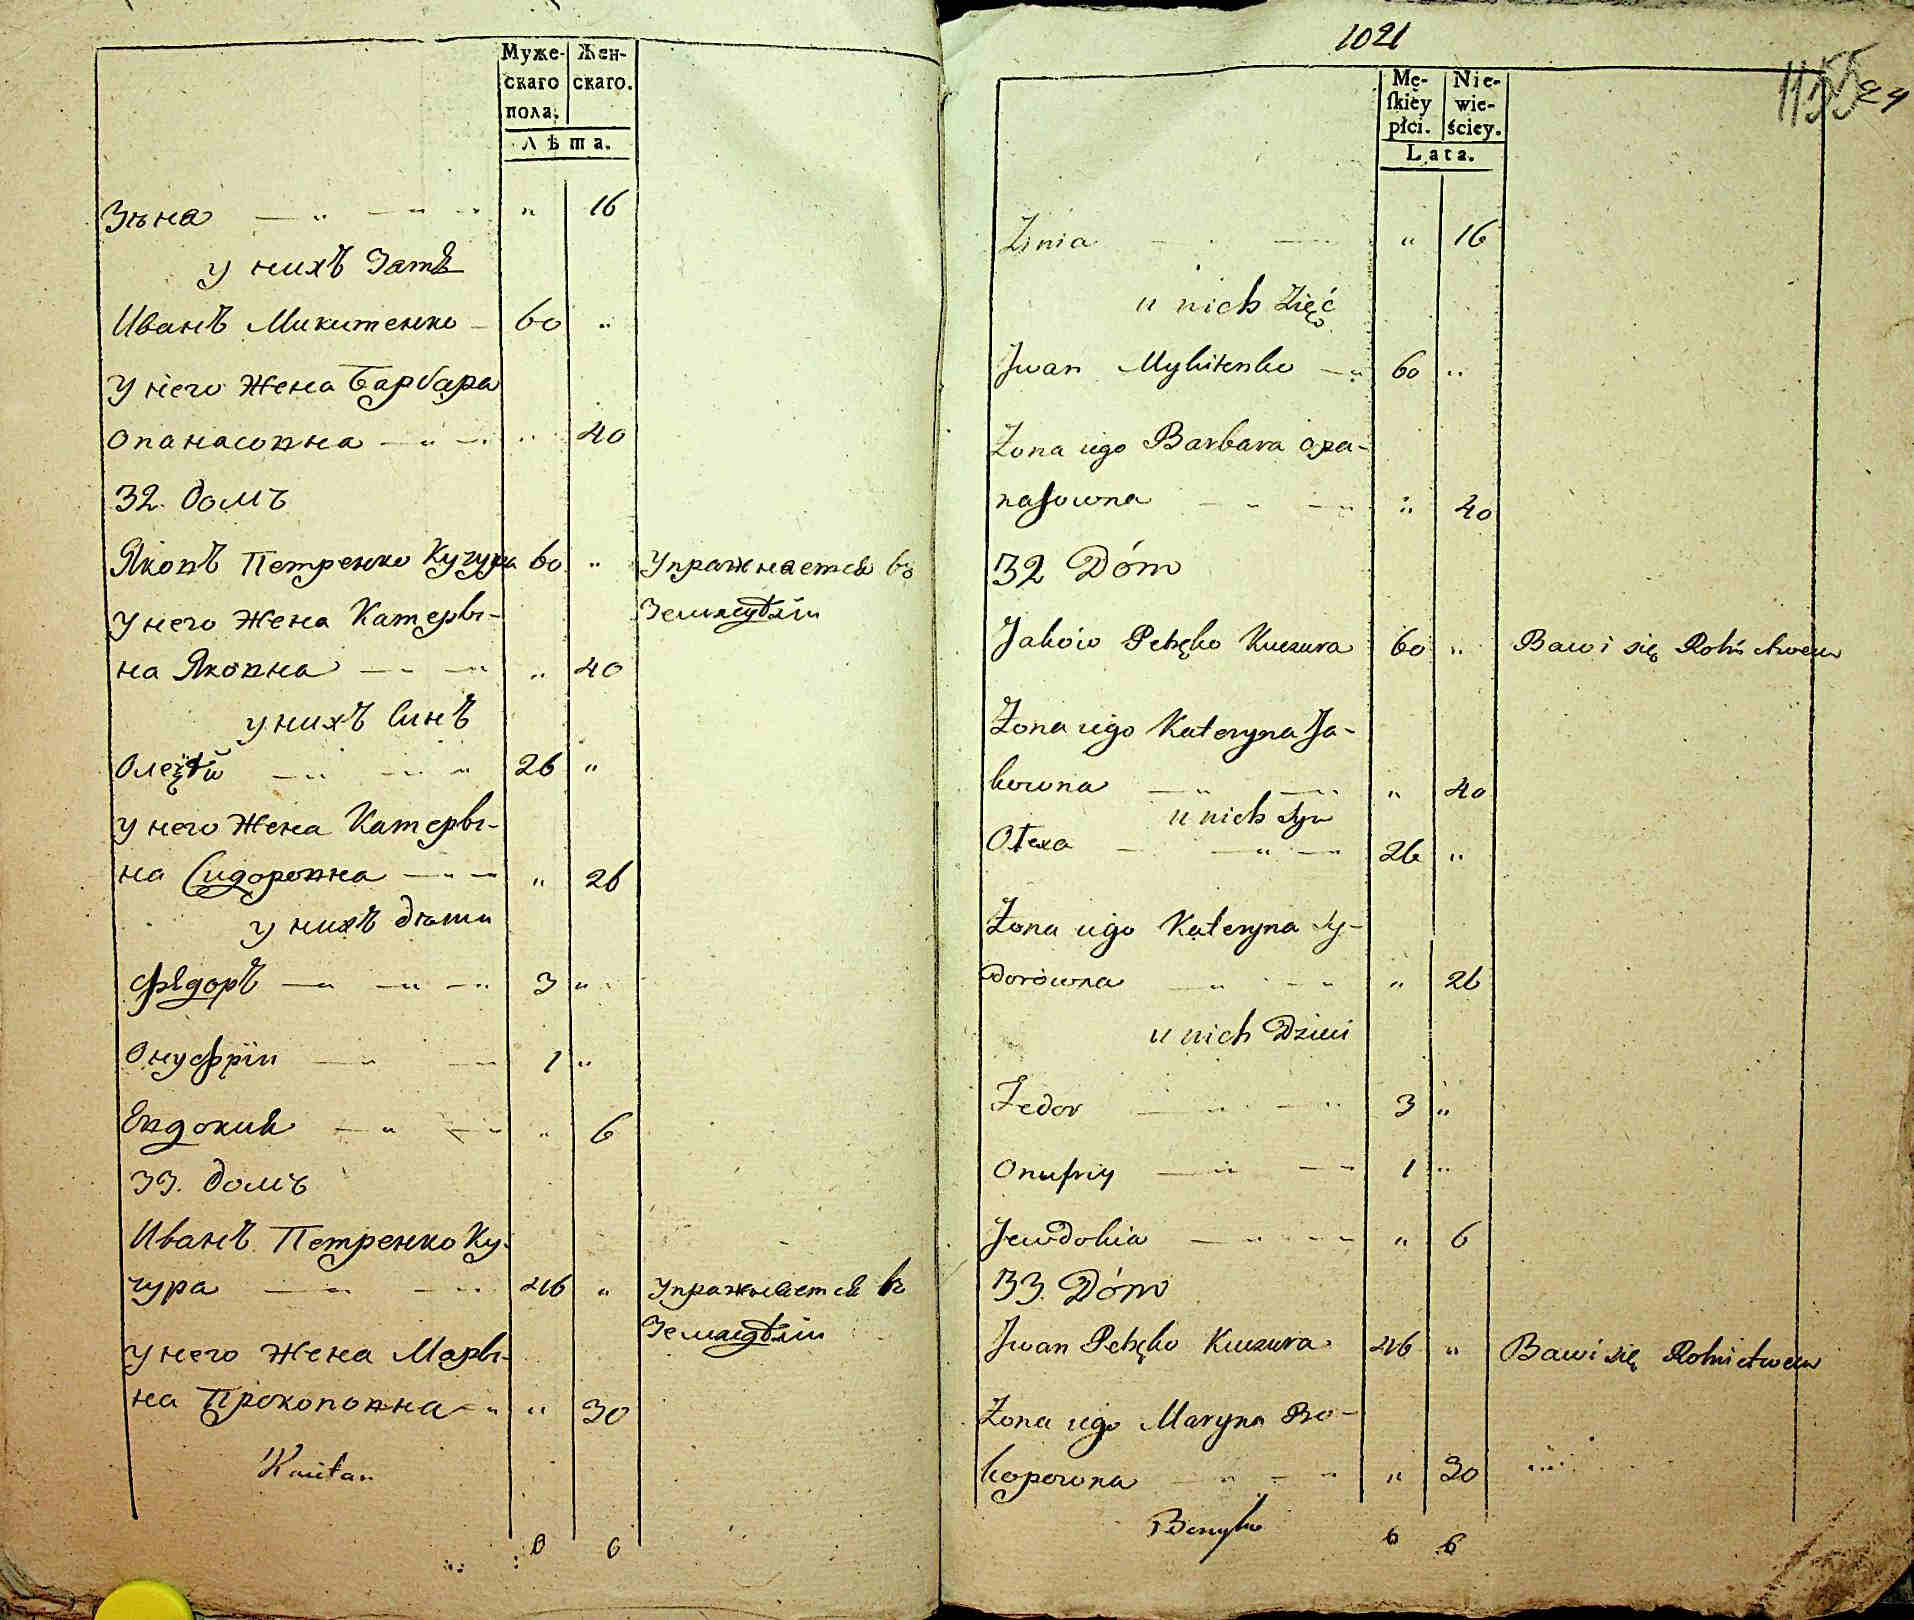 Муже- Жен-
скаго скаго.
пола.
Лѣта.
Зѣна " 16
у нихъ Зятѣ
Иванъ Микитенко 60 "
У него Жена Барбара
Опанасовна " 40
32. домъ
Яковъ Петренко Кучура 60 " Упражняется въ
Земледѣлiи
У него Жена Катеры-
на Яковна " 40
у нихъ Синъ
26 "
У него Жена Катеры-
на Сидоровна " 26
у нихъ дѣти
Фѣдоръ 3 "
Онуфрiи 1 "
Евдокия " 6
33. домъ
Иванъ Петренко Ку-
чура 46 " Упражняется въ
Земледѣлiи
У него Жена Мары-
на Прокоповна " 30
6 6
1021
1155 24
Mę- Nie-
ſkiey wie-
płci. ściey.
Lata.
Zinia " 16
u nich Zięć
Jwan Mykitenko 60 "
Zona iego Barbara Opa-
naſowna " 40
32 Dóm
Jaków Petręko Kuczura 60 " Bawi się Rolnictwem
Zona iego Kateryna Ja-
kowna " 40
u nich Syn
Olexa 26 "
Zona iego Kateryna Sy-
dorówna " 26
u nich Dzieci
Fedor 3 "
Onufriy 1 "
Jewdokia " 6
33. Dóm
Jwan Petręko Kuczura 46 " Bawi się Rolnictwem
Zona iego Maryna Pro-
kopowna " 30
6 6